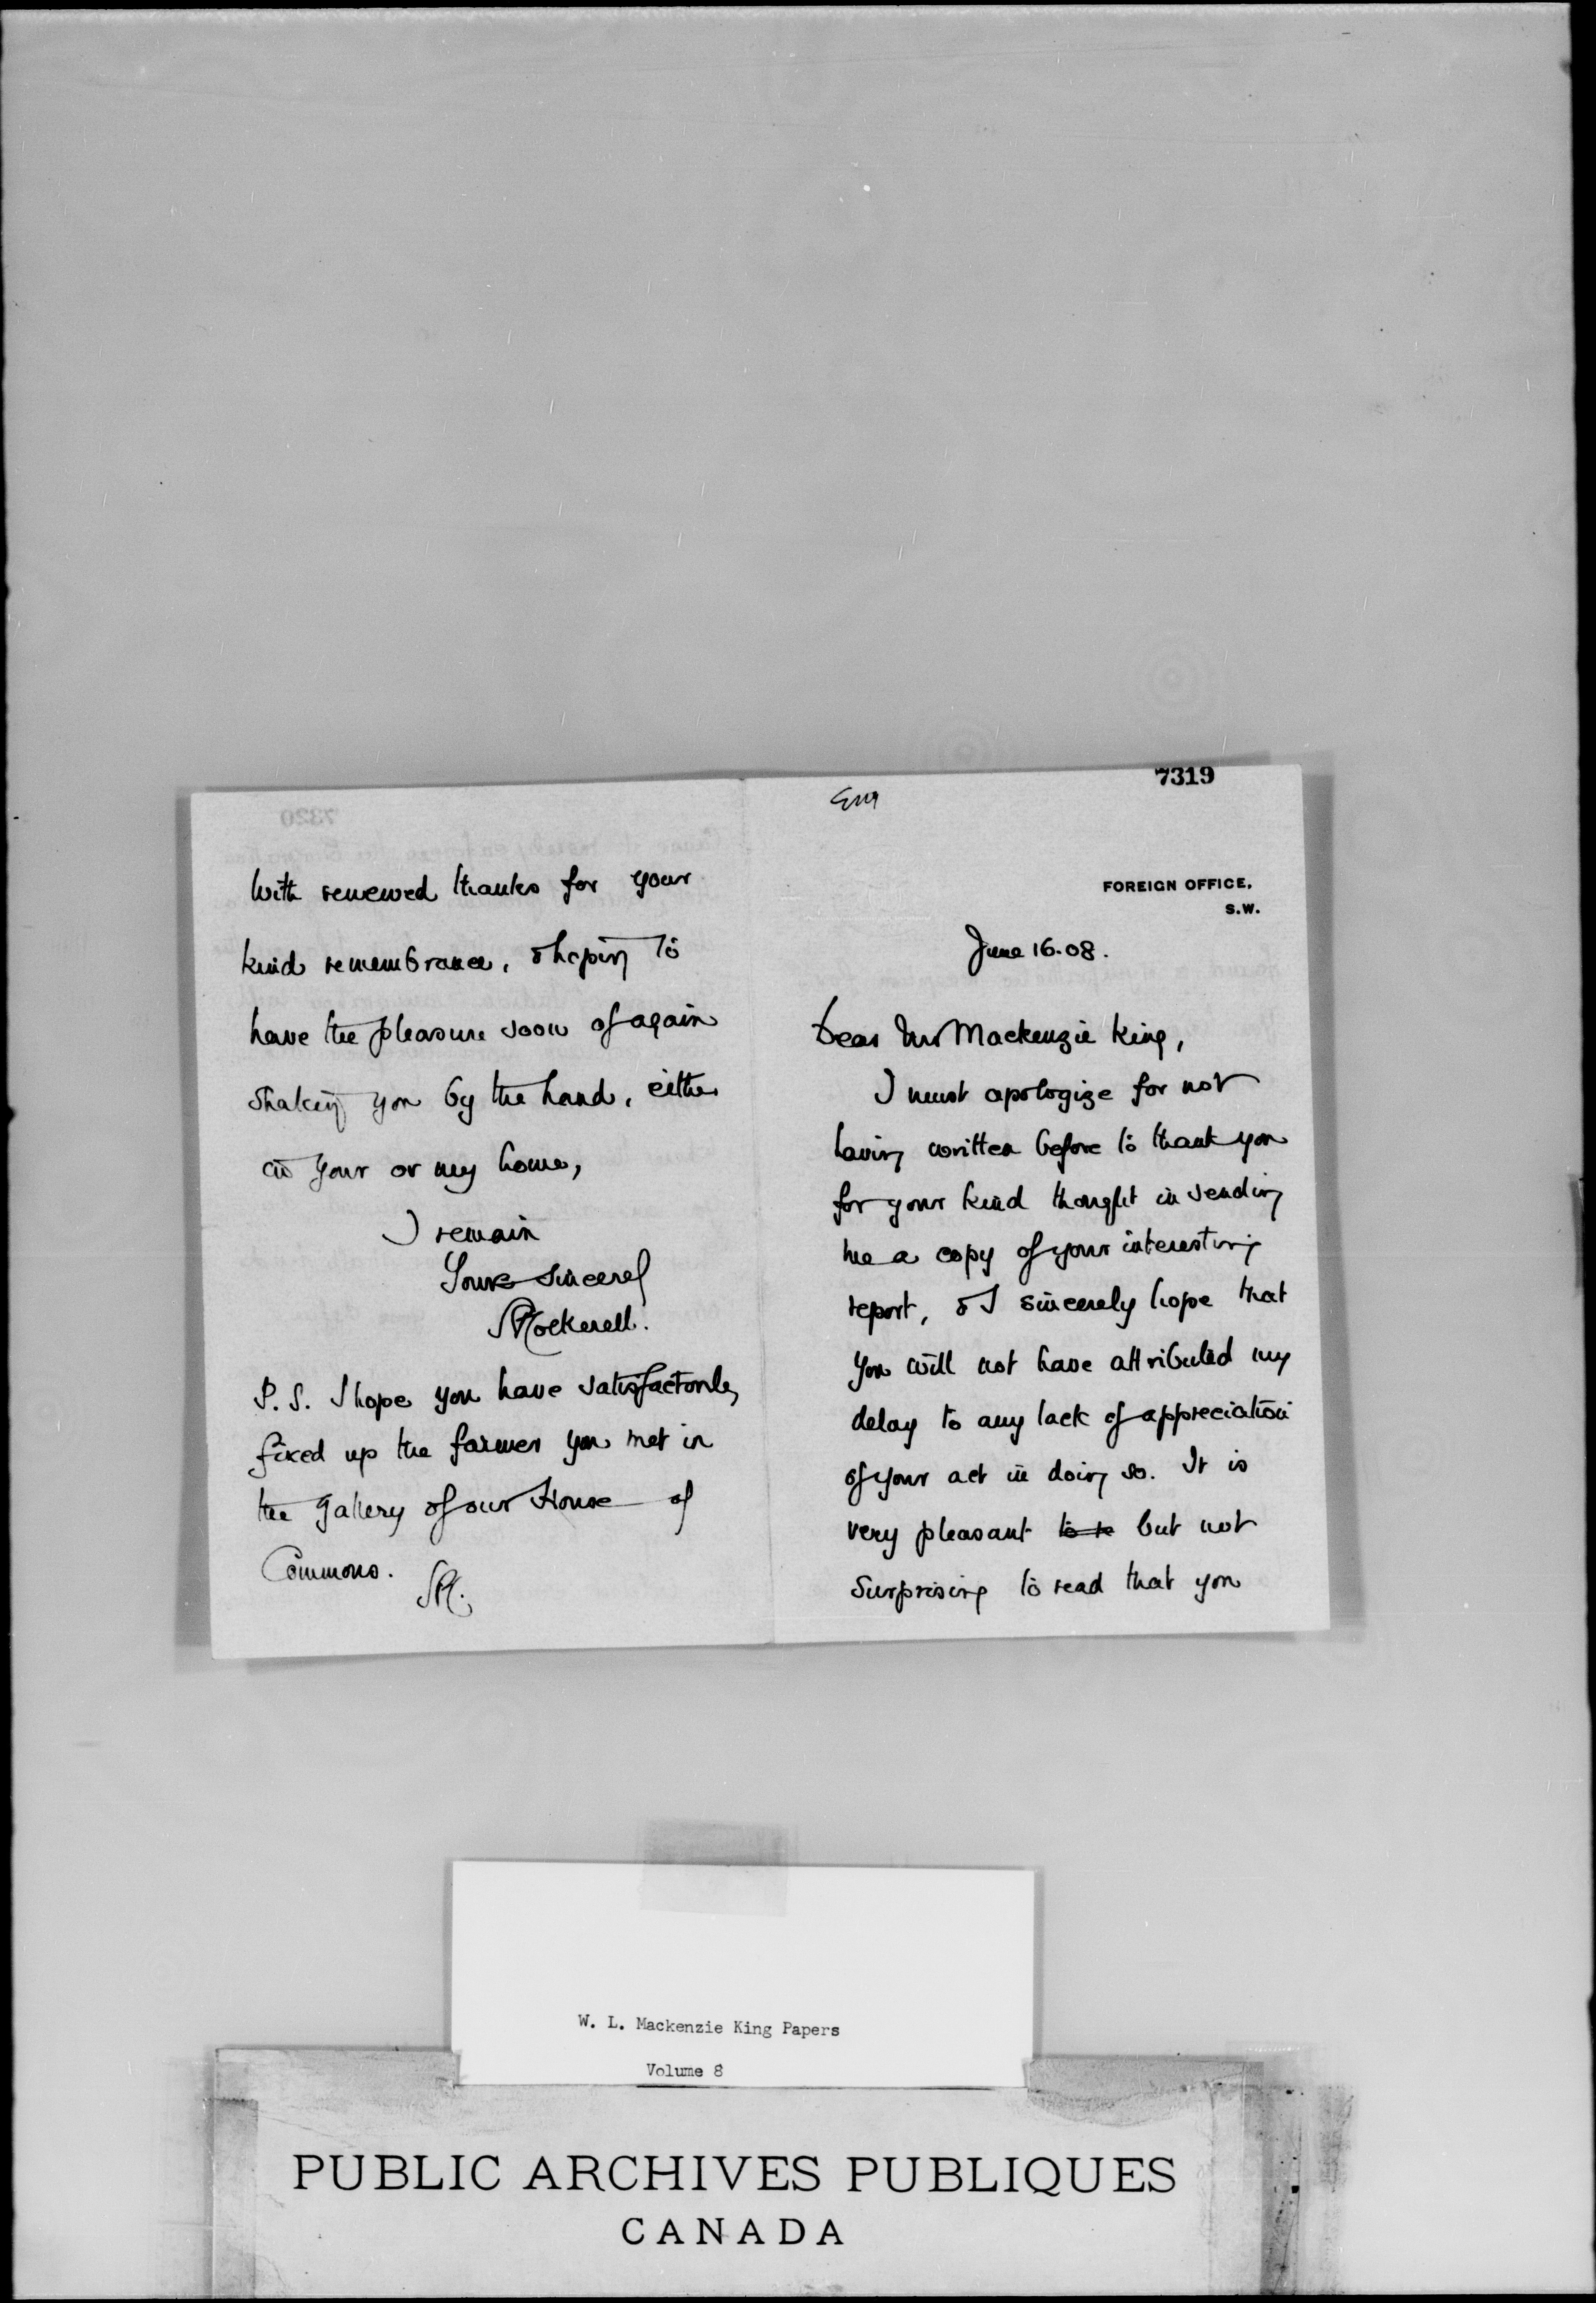 7319
FOREIGN OFFICE,
S.W.
June 16.08.
Dear Mr Mackenzie King,
I must apologize for not
having written before to thank you
for your kind thought in sending
me a copy of your interesting
report, & I sincerely hope that
you will not have attributed my
delay to any lack of appreciation
of your act in doing so. It is
very pleasant but not
surprising to read that you
With renewed thanks for your
kind remembrance, & hoping to
have the pleasure soon of again
shaking you by the hand, either
in your or my home,
I remain
Yours sincerely
P.S. I hope you have satisfactorily
fixed up the farmer you met in
the gallery of our House of
Commons.
W. L. Mackenzie King Papers
Volume 8
PUBLIC ARCHIVES PUBLIQUES
CANADA